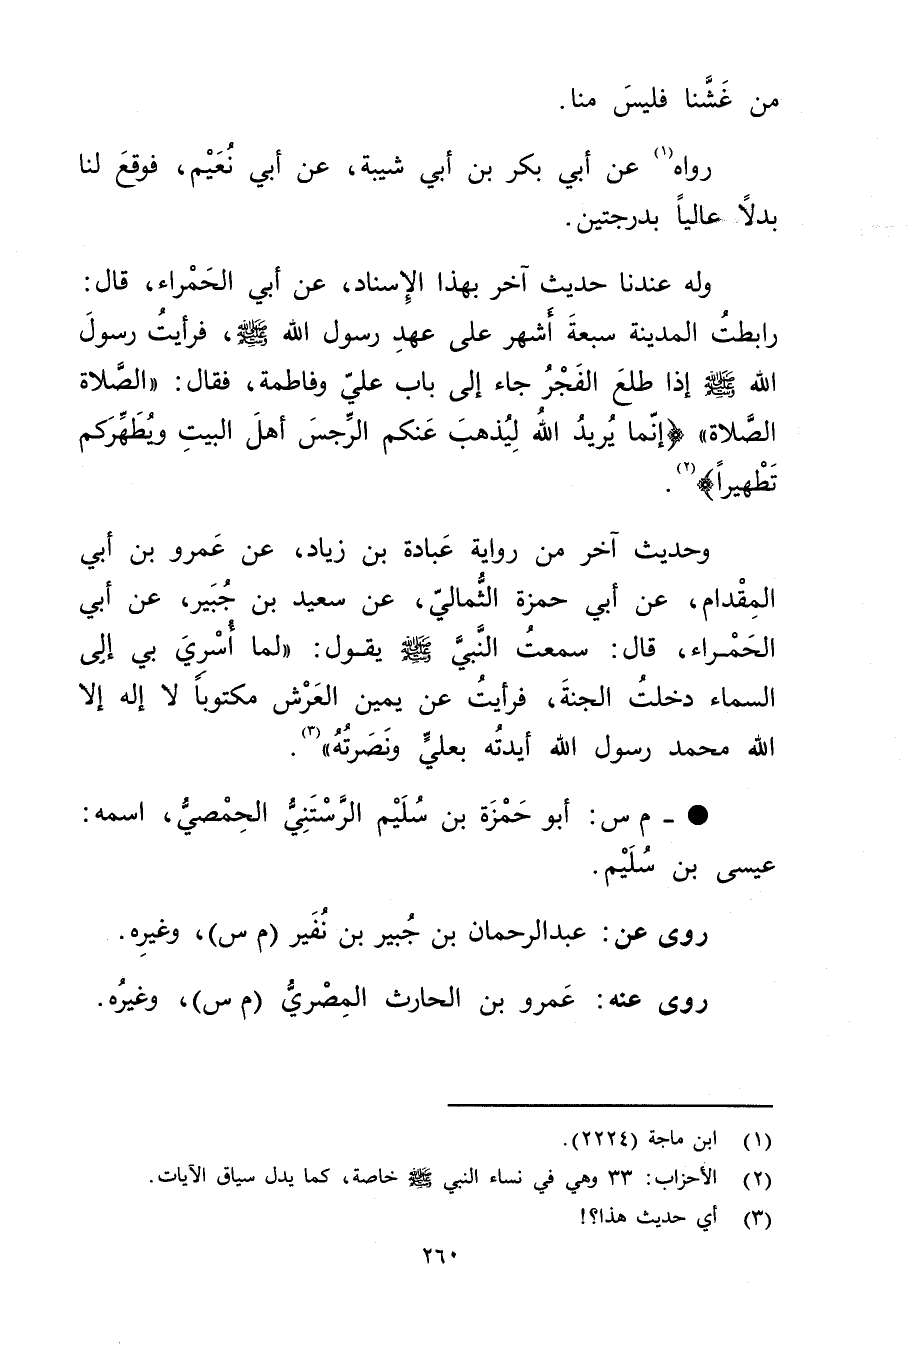 من غَشَّنا فليسَ منا.
رواه(١) عن أبي بكر بن أبي شيبة، عن أبي نُعَيْم، فوقعَ لنا
بدلاً عالياً بدرجتين.
وله عندنا حديث آخر بهذا الإسناد، عن أبي الحَمْراء، قال:
رابطتُ المدينة سبعةَ أَشهر على عهدِ رسول الله ﷺ، فرأيتُ رسولَ
الله ﷺ إذا طلعَ الفَجْرُ جاء إلى باب عليّ وفاطمة، فقال: «الصَّلاة
الصَّلاة» ﴿إنّما يُريدُ اللهُ لِيُذهبَ عَنكم الرِّجسَ أهلَ البيتِ ويُطَهِّرَكم
تَطْهيراً﴾(٢).
وحديث آخر من رواية عَبادة بن زياد، عن عَمرو بن أبي
المِقْدام، عن أبي حمزة الثُّماليّ، عن سعيد بن جُبَير، عن أبي
الحَمْـراء، قال: سمعتُ النَّبيَّ ﷺ يقـول: «لما أُسْرِيَ بي إلى
السماء دخلتُ الجنةَ، فرأيتُ عن يمين العَرْش مكتوباً لا إله إلا
الله محمد رسول الله أيدتُه بعليٍّ ونَصَرتُهُ»(٣).
● ـ م س: أبو حَمْزَة بن سُلَيْم الرَّسْتَنِيُّ الحِمْصيُّ، اسمه:
عيسى بن سُلَيْم.
روى عن: عبدالرحمان بن جُبير بن نُفَير (م س)، وغيرِه.
روى عنه: عَمرو بن الحارث المِصْريُّ (م س)، وغيرُه.
(١) ابن ماجة (٢٢٢٤).
(٢) الأحزاب: ٣٣ وهي في نساء النبي ﷺ خاصة، كما يدل سياق الآيات.
(٣) أي حديث هذا؟!
٢٦٠